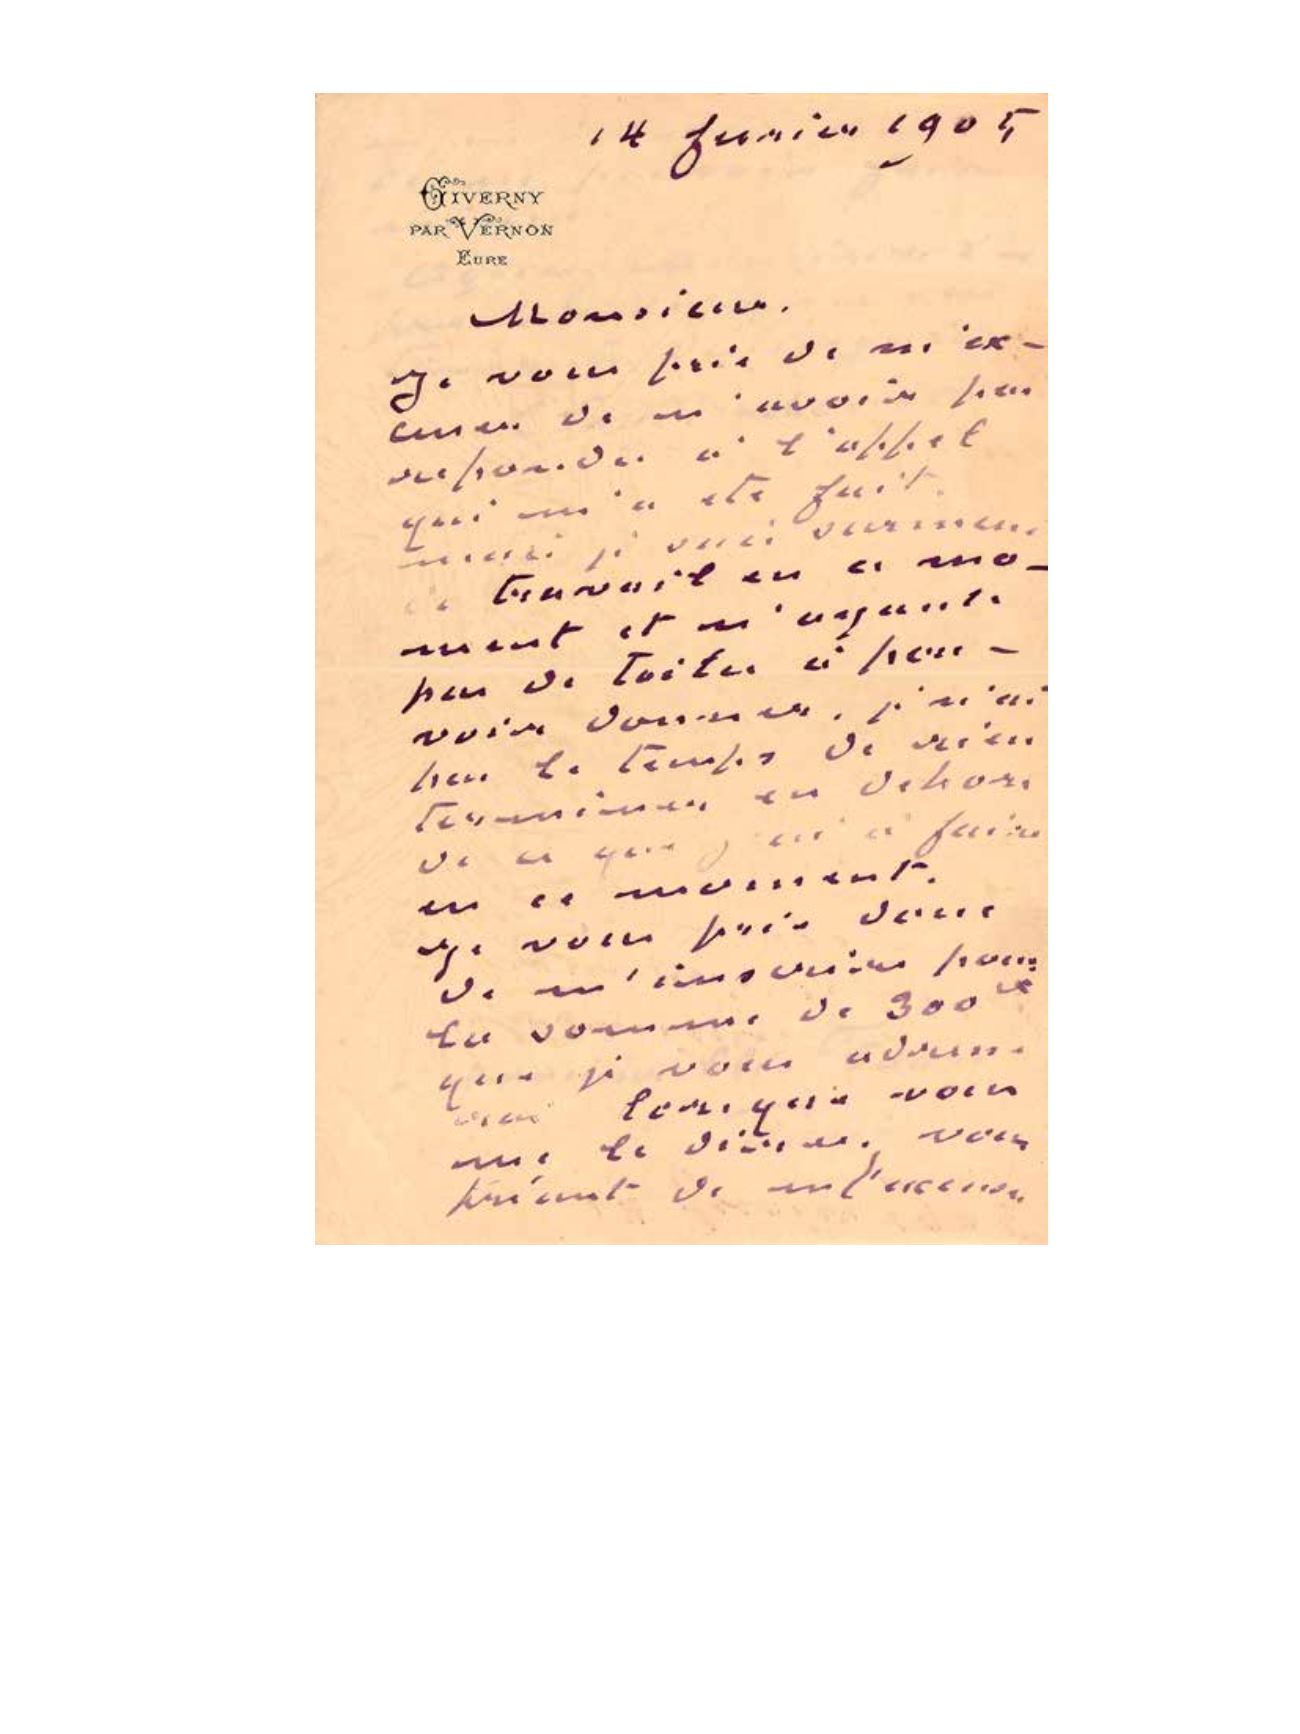 14 fevrier 1905
GIVERNY
PAR VERNON
EURE
Monsieur.
Je vous prie de m'ex-
cuser de n'avoir pas
repondu à l'appel
qui m'a été fait.
mais je suis surmené
de travail en ce mo-
ment et n'ayant
pas de toiles à pou-
voir donner, je n'ai
pas le temps de rien
terminer en dehors
de ce que j'ai à faire
en ce moment.
Je vous prie donc
de m'inscrire pour
la somme de 300
que je vous adresse
rai lorsque vous
me le direz. vous
priant de m'excuser